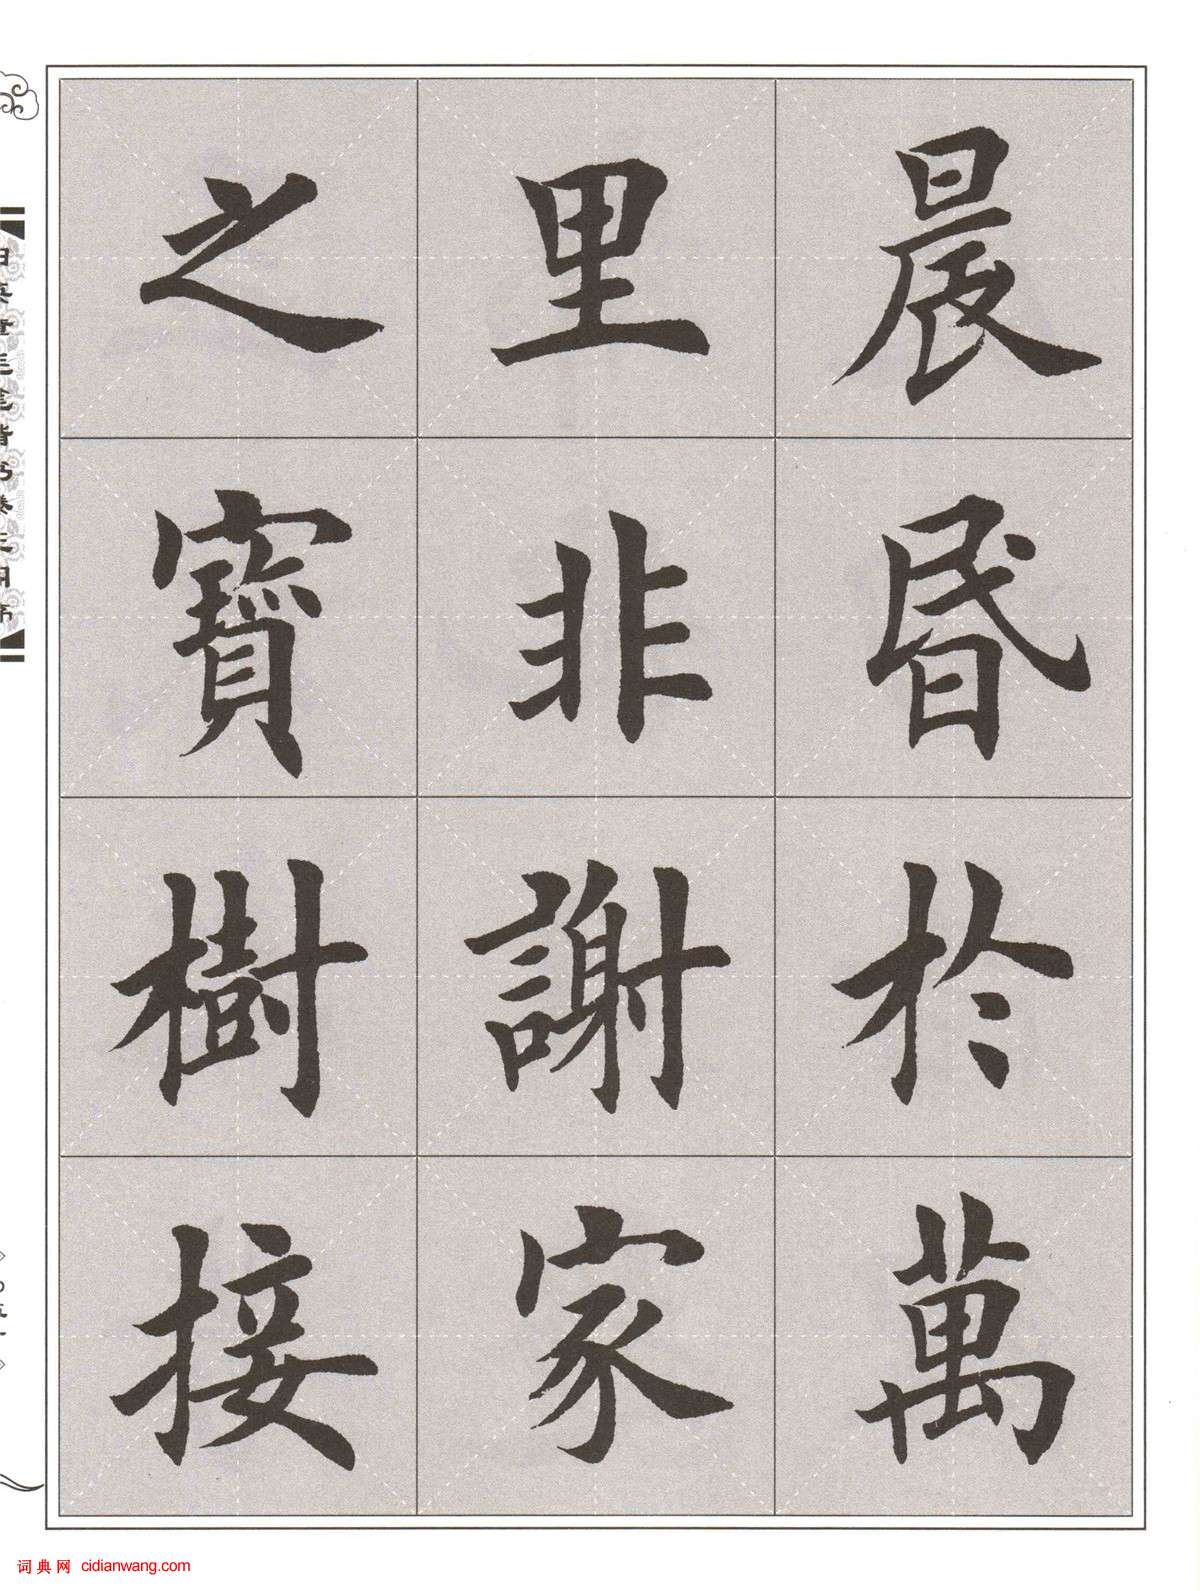 晨昏於萬
里非謝家
之寶樹接
田英章毛笔楷书滕王阁序
词典网 cidianwang.com